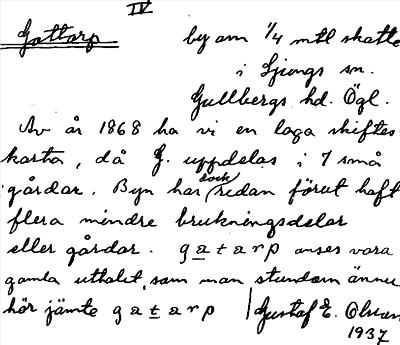 IV
Gottorp by om 1/4 mtl skatte
i Ljungs sn.
Gullbergs hd. Ögl.
Av år 1868 ha vi en laga skiftes
karta, då G. uppdelas i 7 små
gårdar. Byn har dock redan förut haft
flera mindre brukningsdelar
eller gårdar. gatarp anses vara
gamla uttalet, som man stundom ännu
hör jämte gatarp Gustaf E. Olsson
1937